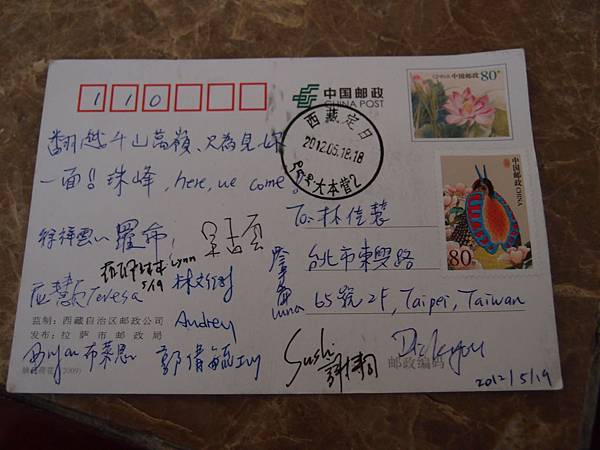 110
中国邮政
CHINA POST
中国邮政 80分
西藏.定日
2012.05.18.18
大本营2
中国邮政 CHINA
80分
翻越千山萬嶺、只為見妳
一面!! 珠峰, here, we come!
To: 林佳慧
台北市東興路
65號2F, Taipei, Taiwan
徐祥雲
羅俞
Lynn
5/19
Teresa
Luna
Audrey
监制：西藏自治区邮政公司
发布：拉萨市邮政局
布萊恩
郭倩毓 Ivy
Sushi
邮政编码
(2009)
2012/5/19